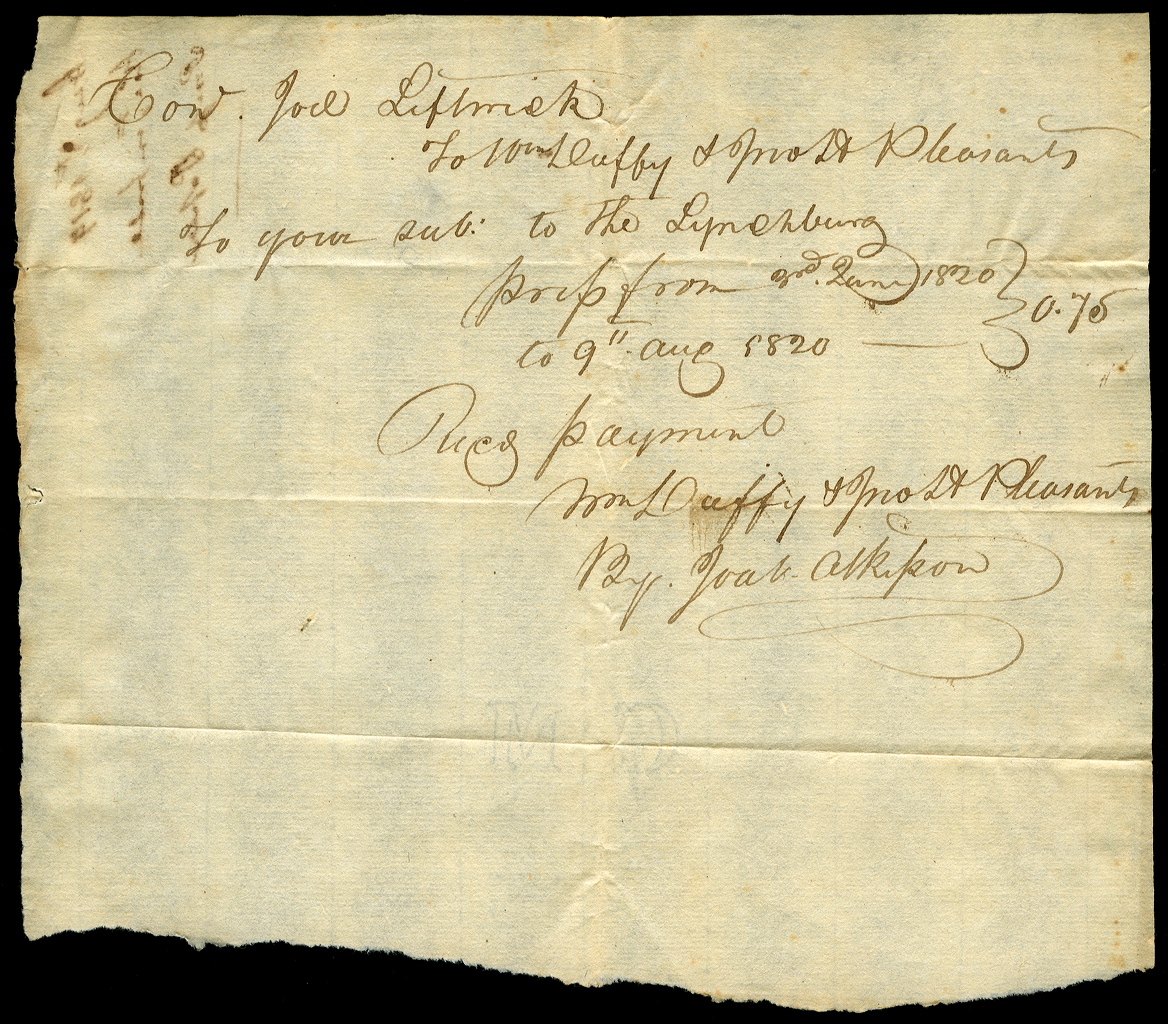 Conl. Joel Leftwick
To Wm Duffy & Jno Ld Pleasants
To your sub: to the Lynchburg
press from 3rd. June 1820 } 0.75
to 9th Aug 1820
Recd payment
Wm Duffy & Jno Ld Pleasants
By. Joab Atkisson